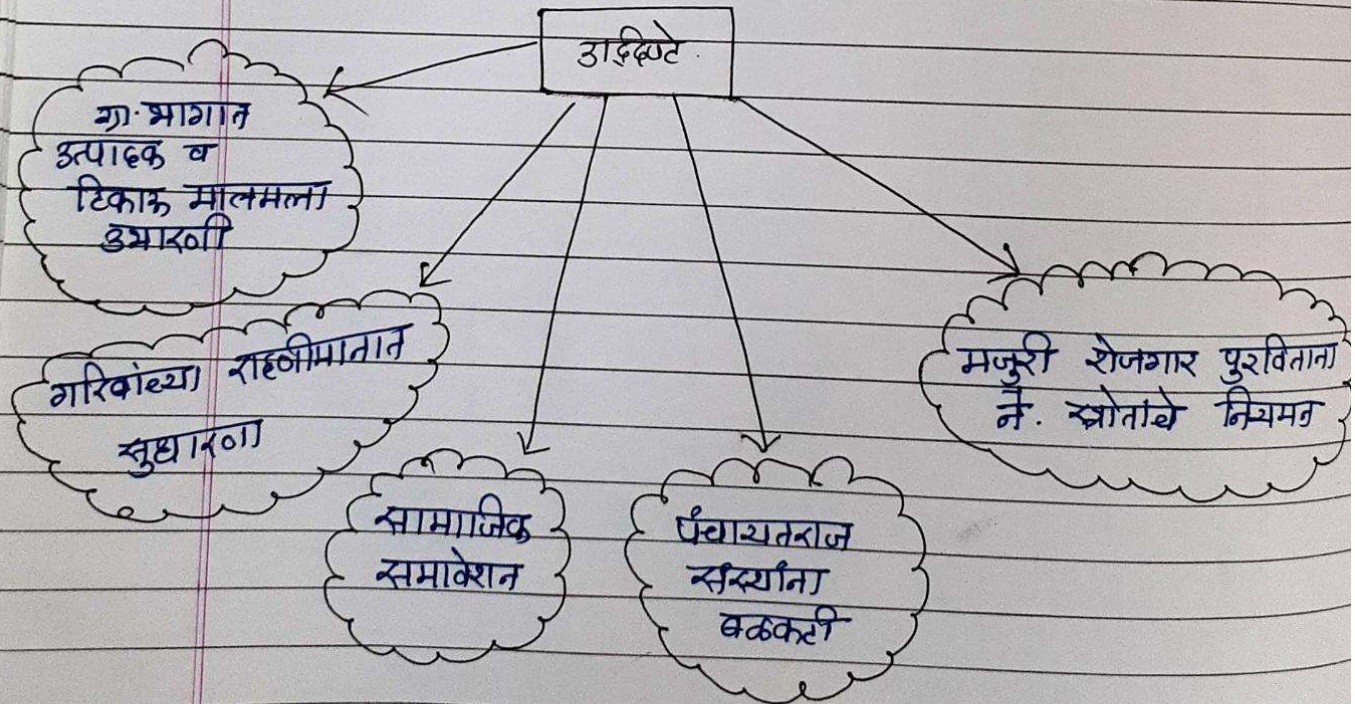 उद्दिष्टे.
ग्रा. भागात
उत्पादक व
टिकाऊ मालमत्ता
उभारणी
गरिबांच्या राहणीमानात
सुधारणा
सामाजिक
समावेशन
पंचायतराज
संस्थांना
बळकटी
मजुरी रोजगार पुरविताना
नै. स्रोतांचे नियमन